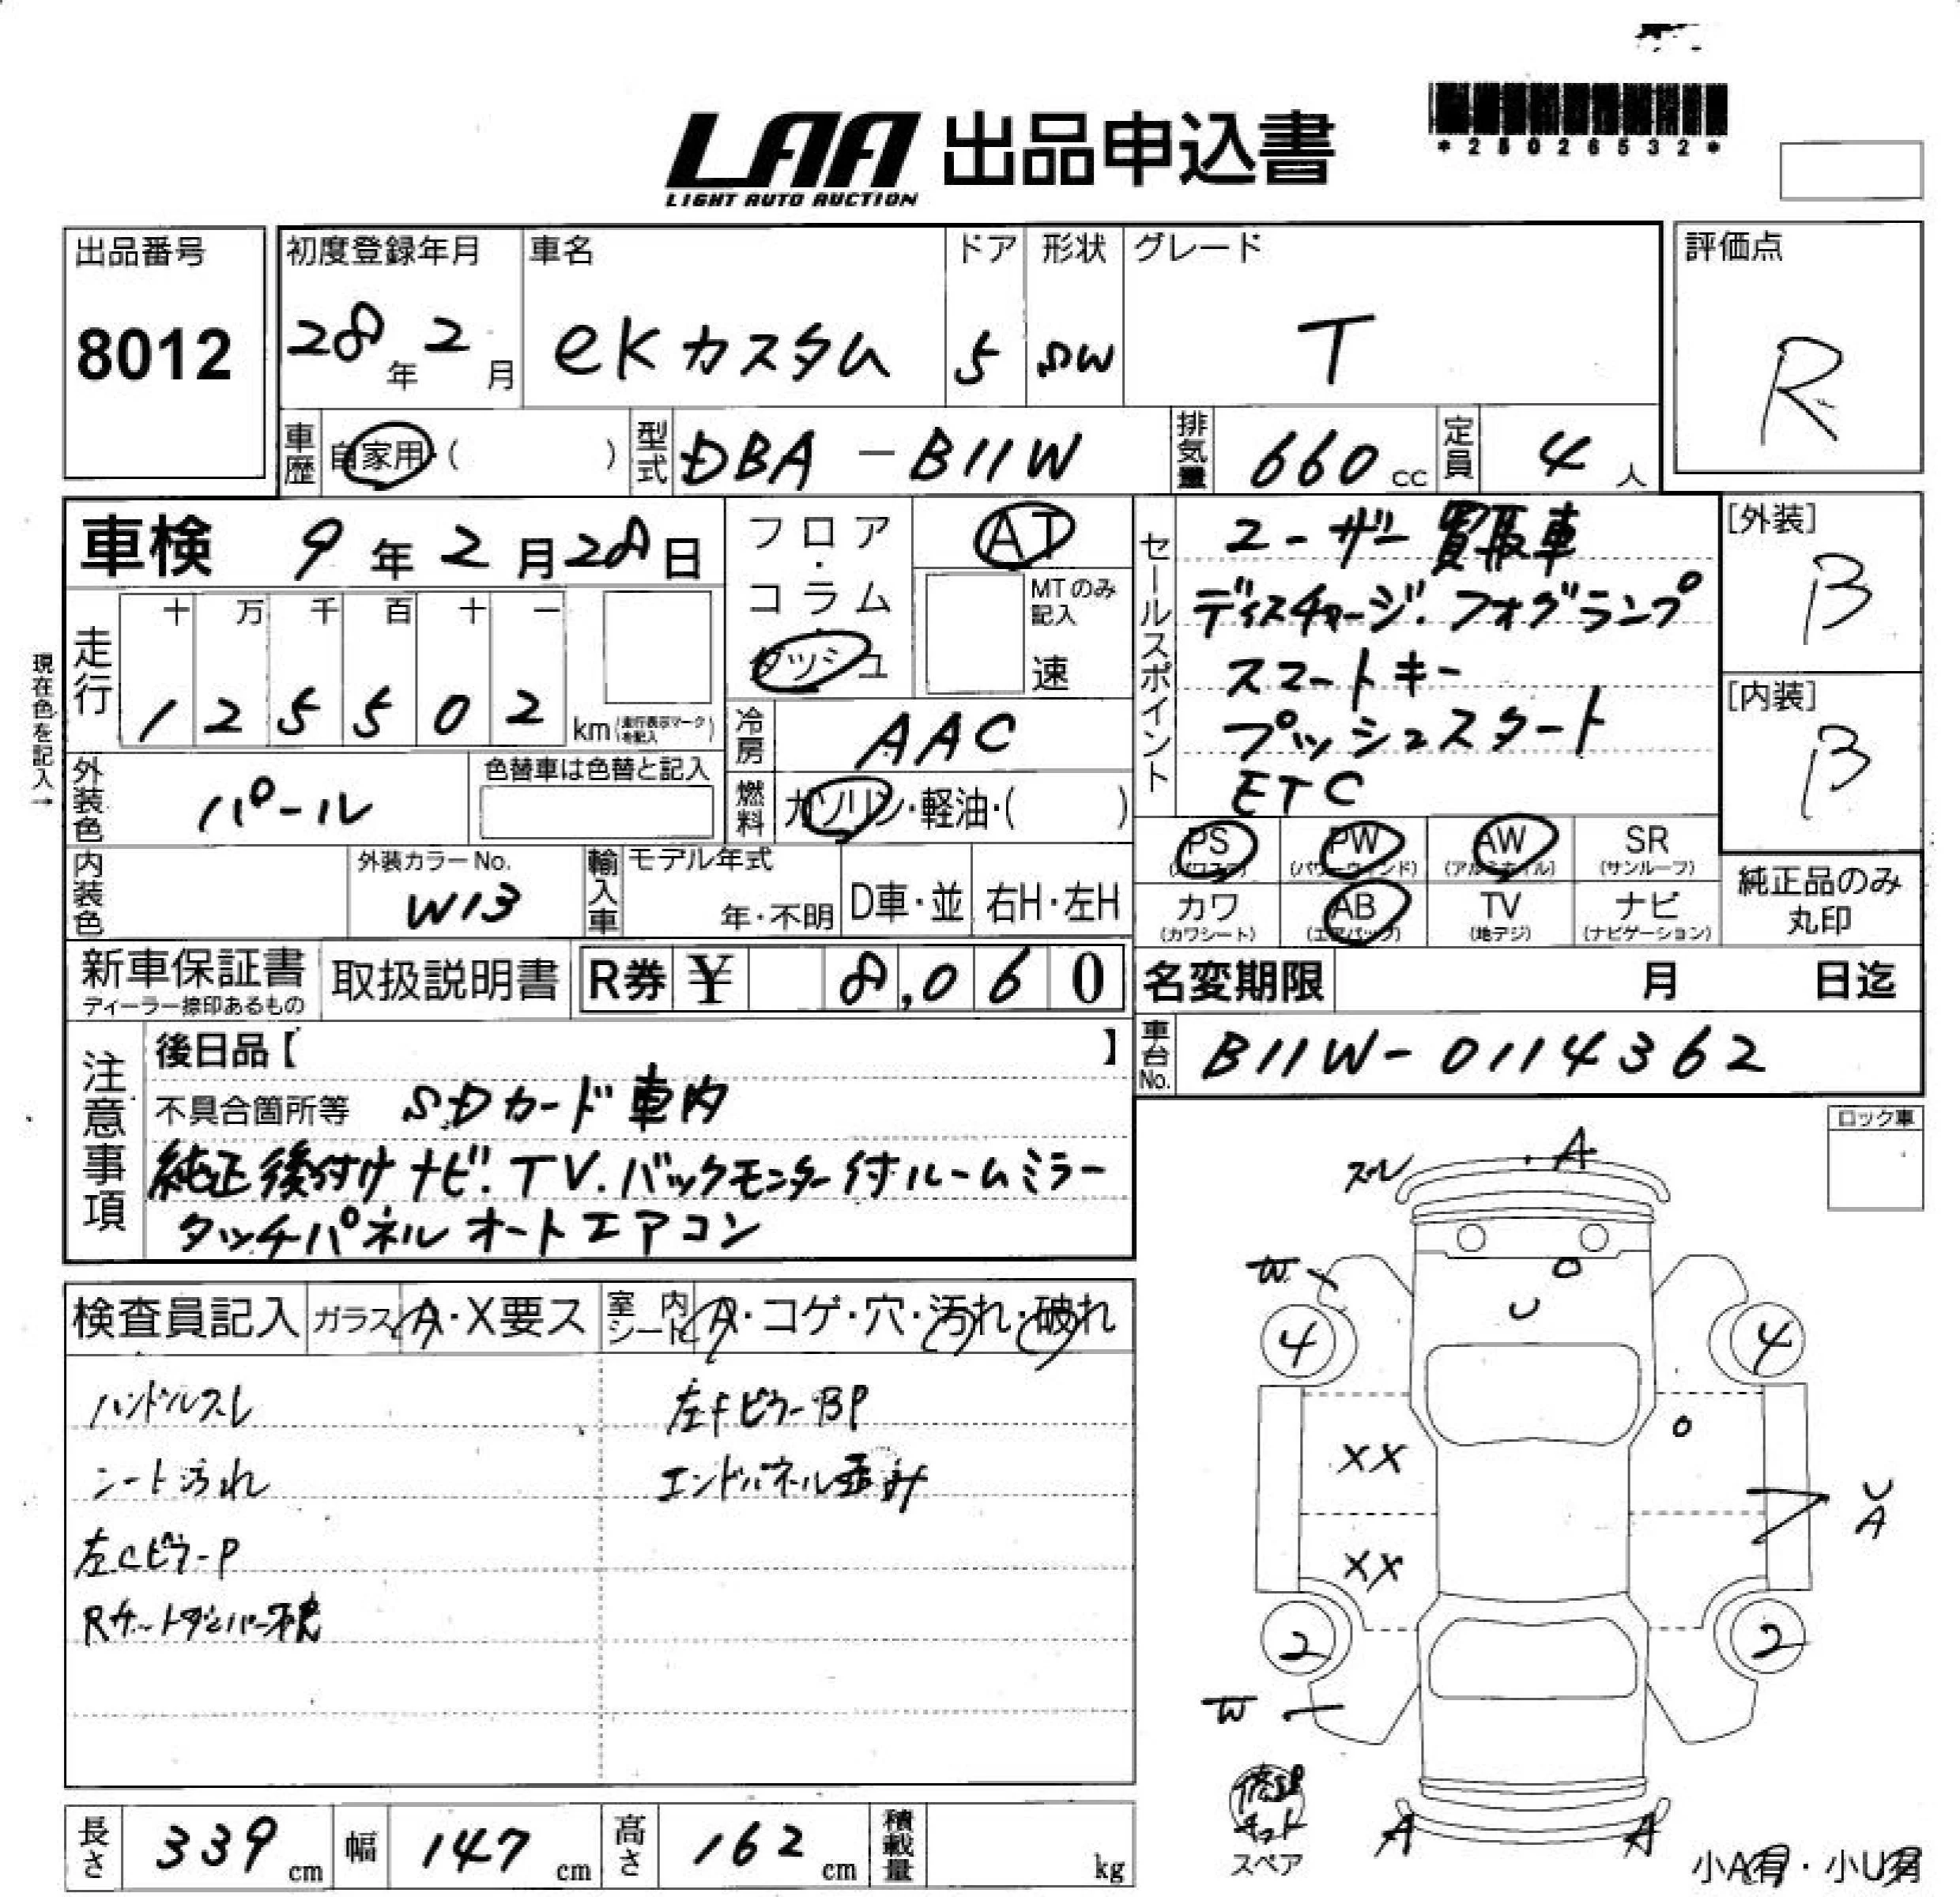 LAA 出品申込書
LIGHT AUTO AUCTION
*25026532*
出品番号
8012
初度登録年月
28年2月
車名
eKカスタム
ドア
5
形状
SW
グレード
T
評価点
R
車歴
自家用・( )
型式
DBA-B11W
排気量
660cc
定員
4人
車検 9年2月28日
フロア・コラム・ダッシュ
AT
MTのみ記入
速
現在色を記入→
走行
十 万 千 百 十 一
1 2 5 5 0 2
km(走行表示マークを記入)
冷房
AAC
燃料
ガソリン・軽油・( )
外装色
パール
色替車は色替と記入
内装色
外装カラーNo.
W13
輸入車
モデル年式
年・不明
D車・並
右H・左H
セールスポイント
ユーザー買取車
ディスチャージ.フォグランプ
スマートキー
プッシュスタート
ETC
[外装]
B
[内装]
B
PS (パワステ)
PW (パワーウィンド)
AW (アルミホイル)
SR (サンルーフ)
カワ (カワシート)
AB (エアバック)
TV (地デジ)
ナビ (ナビゲーション)
純正品のみ丸印
新車保証書
ディーラー捺印あるもの
取扱説明書
R券 ¥ 8,060
名変期限 月 日迄
車台No.
B11W-0114362
注意事項
後日品【 】
不具合箇所等 SDカード車内
純正後付けナビ.TV.バックモニター付ルームミラー
タッチパネルオートエアコン
検査員記入
ガラス A・X要ス
室内シート A・コゲ・穴・汚れ・破れ
ハンドルスレ
シート汚れ
左CピラーP
Rゲートダンパー
左FピラーBP
エンドパネル歪み
ロック車
スレ
A
W
U
4
4
XX
U
A
XX
2
2
W
修理キット
スペア
A
A
小A有・小U有
長さ
339cm
幅
147cm
高さ
162cm
積載量
kg